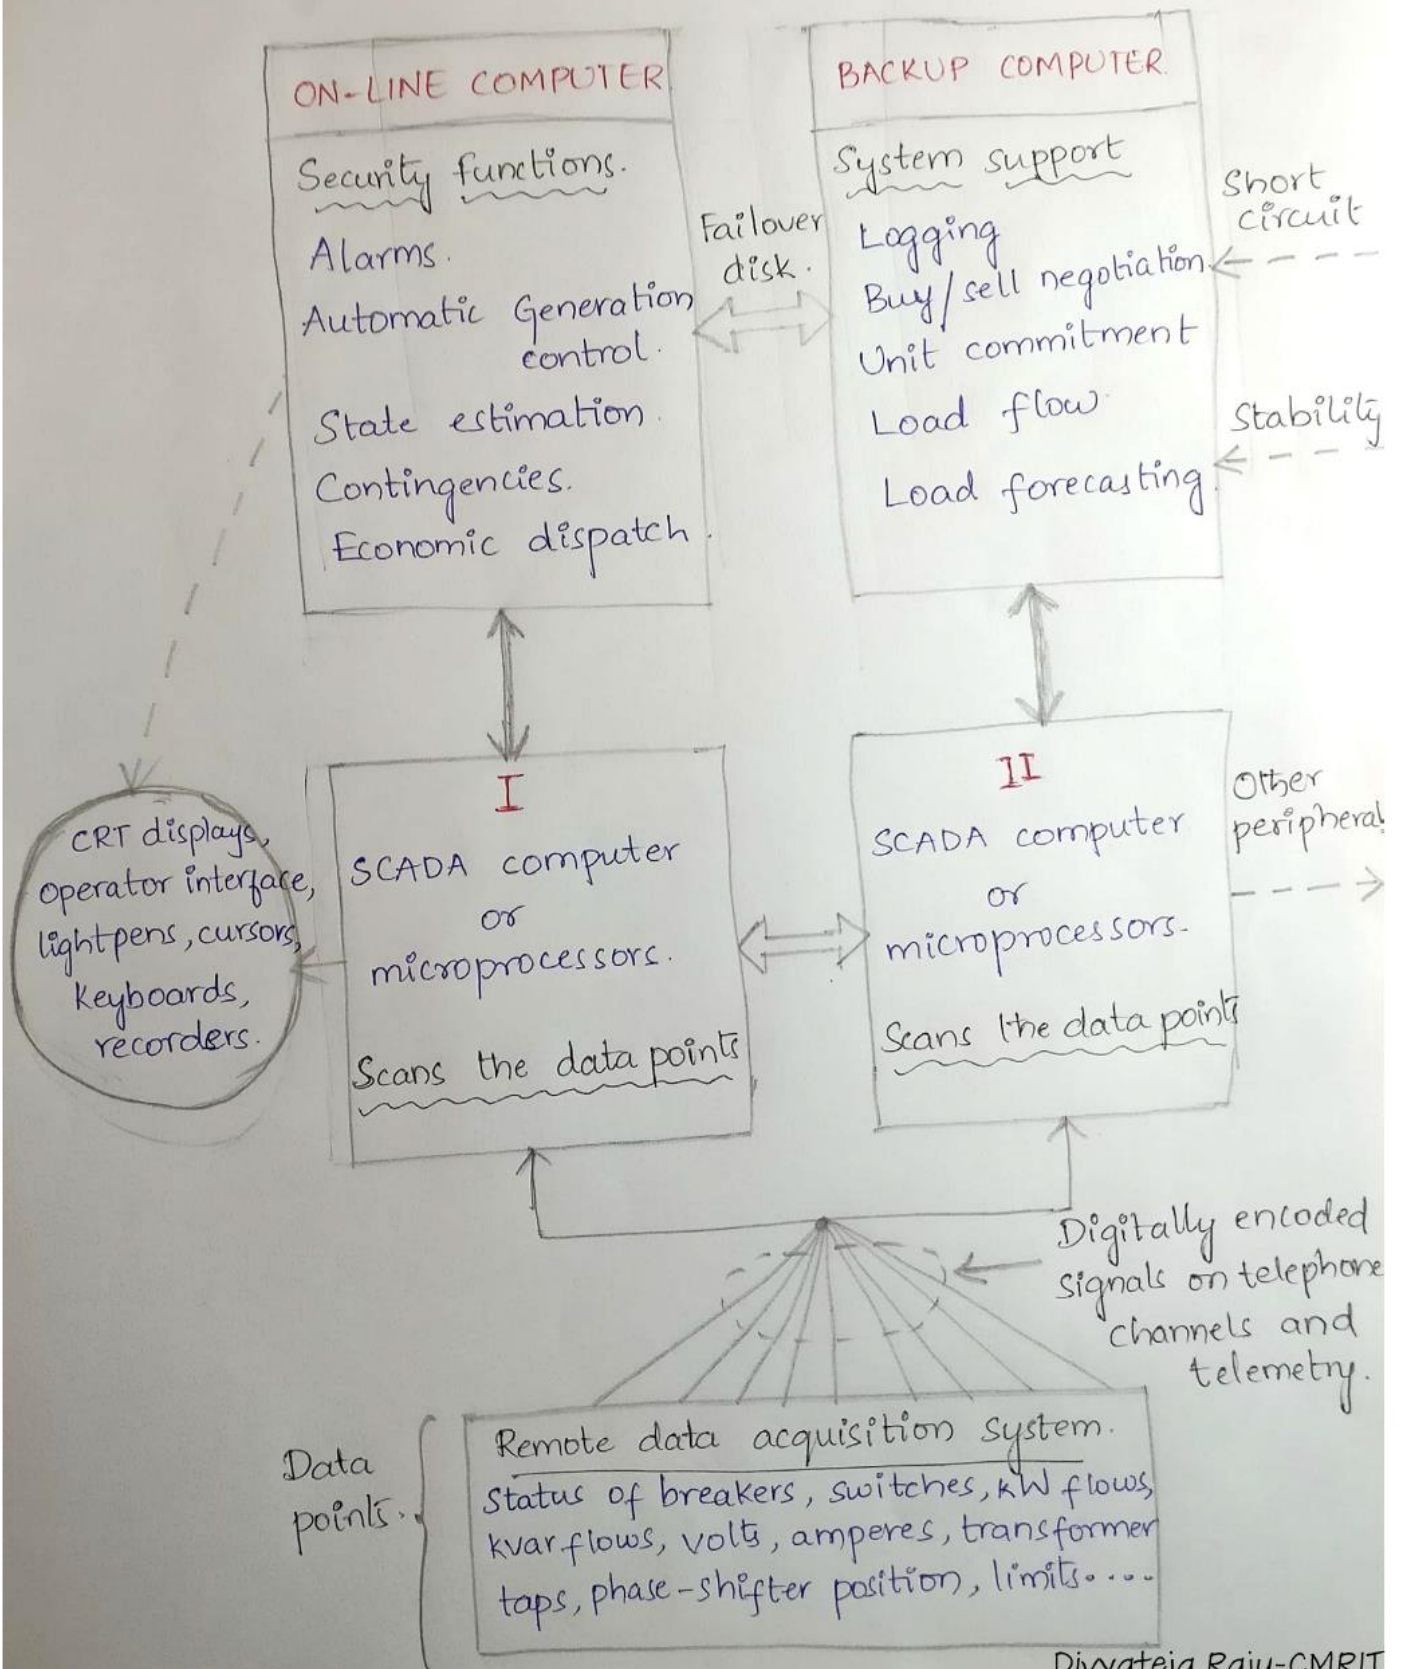 ON-LINE COMPUTER
Security functions.
Alarms.
Automatic Generation
control.
State estimation.
Contingencies.
Economic dispatch.
Failover
disk.
BACKUP COMPUTER
System support
Logging
Buy/sell negotiation
Unit commitment
Load flow
Load forecasting
Short
circuit
Stability
CRT displays,
operator interface,
lightpens, cursors,
keyboards,
recorders.
I
SCADA computer
or
microprocessors.
Scans the data points
II
SCADA computer
or
microprocessors.
Scans the data points
Other
peripheral
Digitally encoded
signals on telephone
channels and
telemetry.
Data
points.
Remote data acquisition system.
Status of breakers, switches, kW flows,
kvar flows, volts, amperes, transformer
taps, phase-shifter position, limits.....
Divyateja Raju-CMRIT